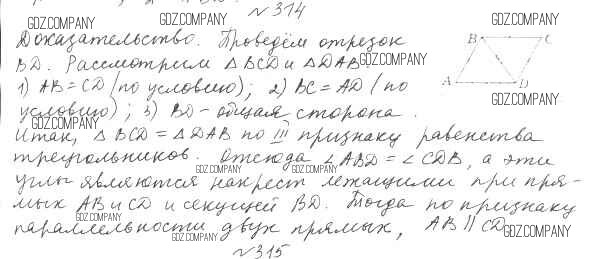 №314
GDZ.COMPANY GDZ.COMPANY GDZ.COMPANY
Доказательство. Проведём отрезок
BD. Рассмотрим △BCD и △DAB.
GDZ.COMPANY
B C
A D
1) AB = CD (по условию); 2) BC = AD (по
GDZ.COMPANY
условию); 3) BD - общая сторона.
GDZ.COMPANY
Итак, △BCD = △DAB по III признаку равенства
треугольников. Отсюда ∠ABD = ∠CDB, а эти
GDZ.COMPANY GDZ.COMPANY GDZ.COMPANY
углы являются накрест лежащими при пря-
мых AB и CD и секущей BD. Тогда по признаку
GDZ.COMPANY
параллельности двух прямых, AB || CD
GDZ.COMPANY GDZ.COMPANY
№315